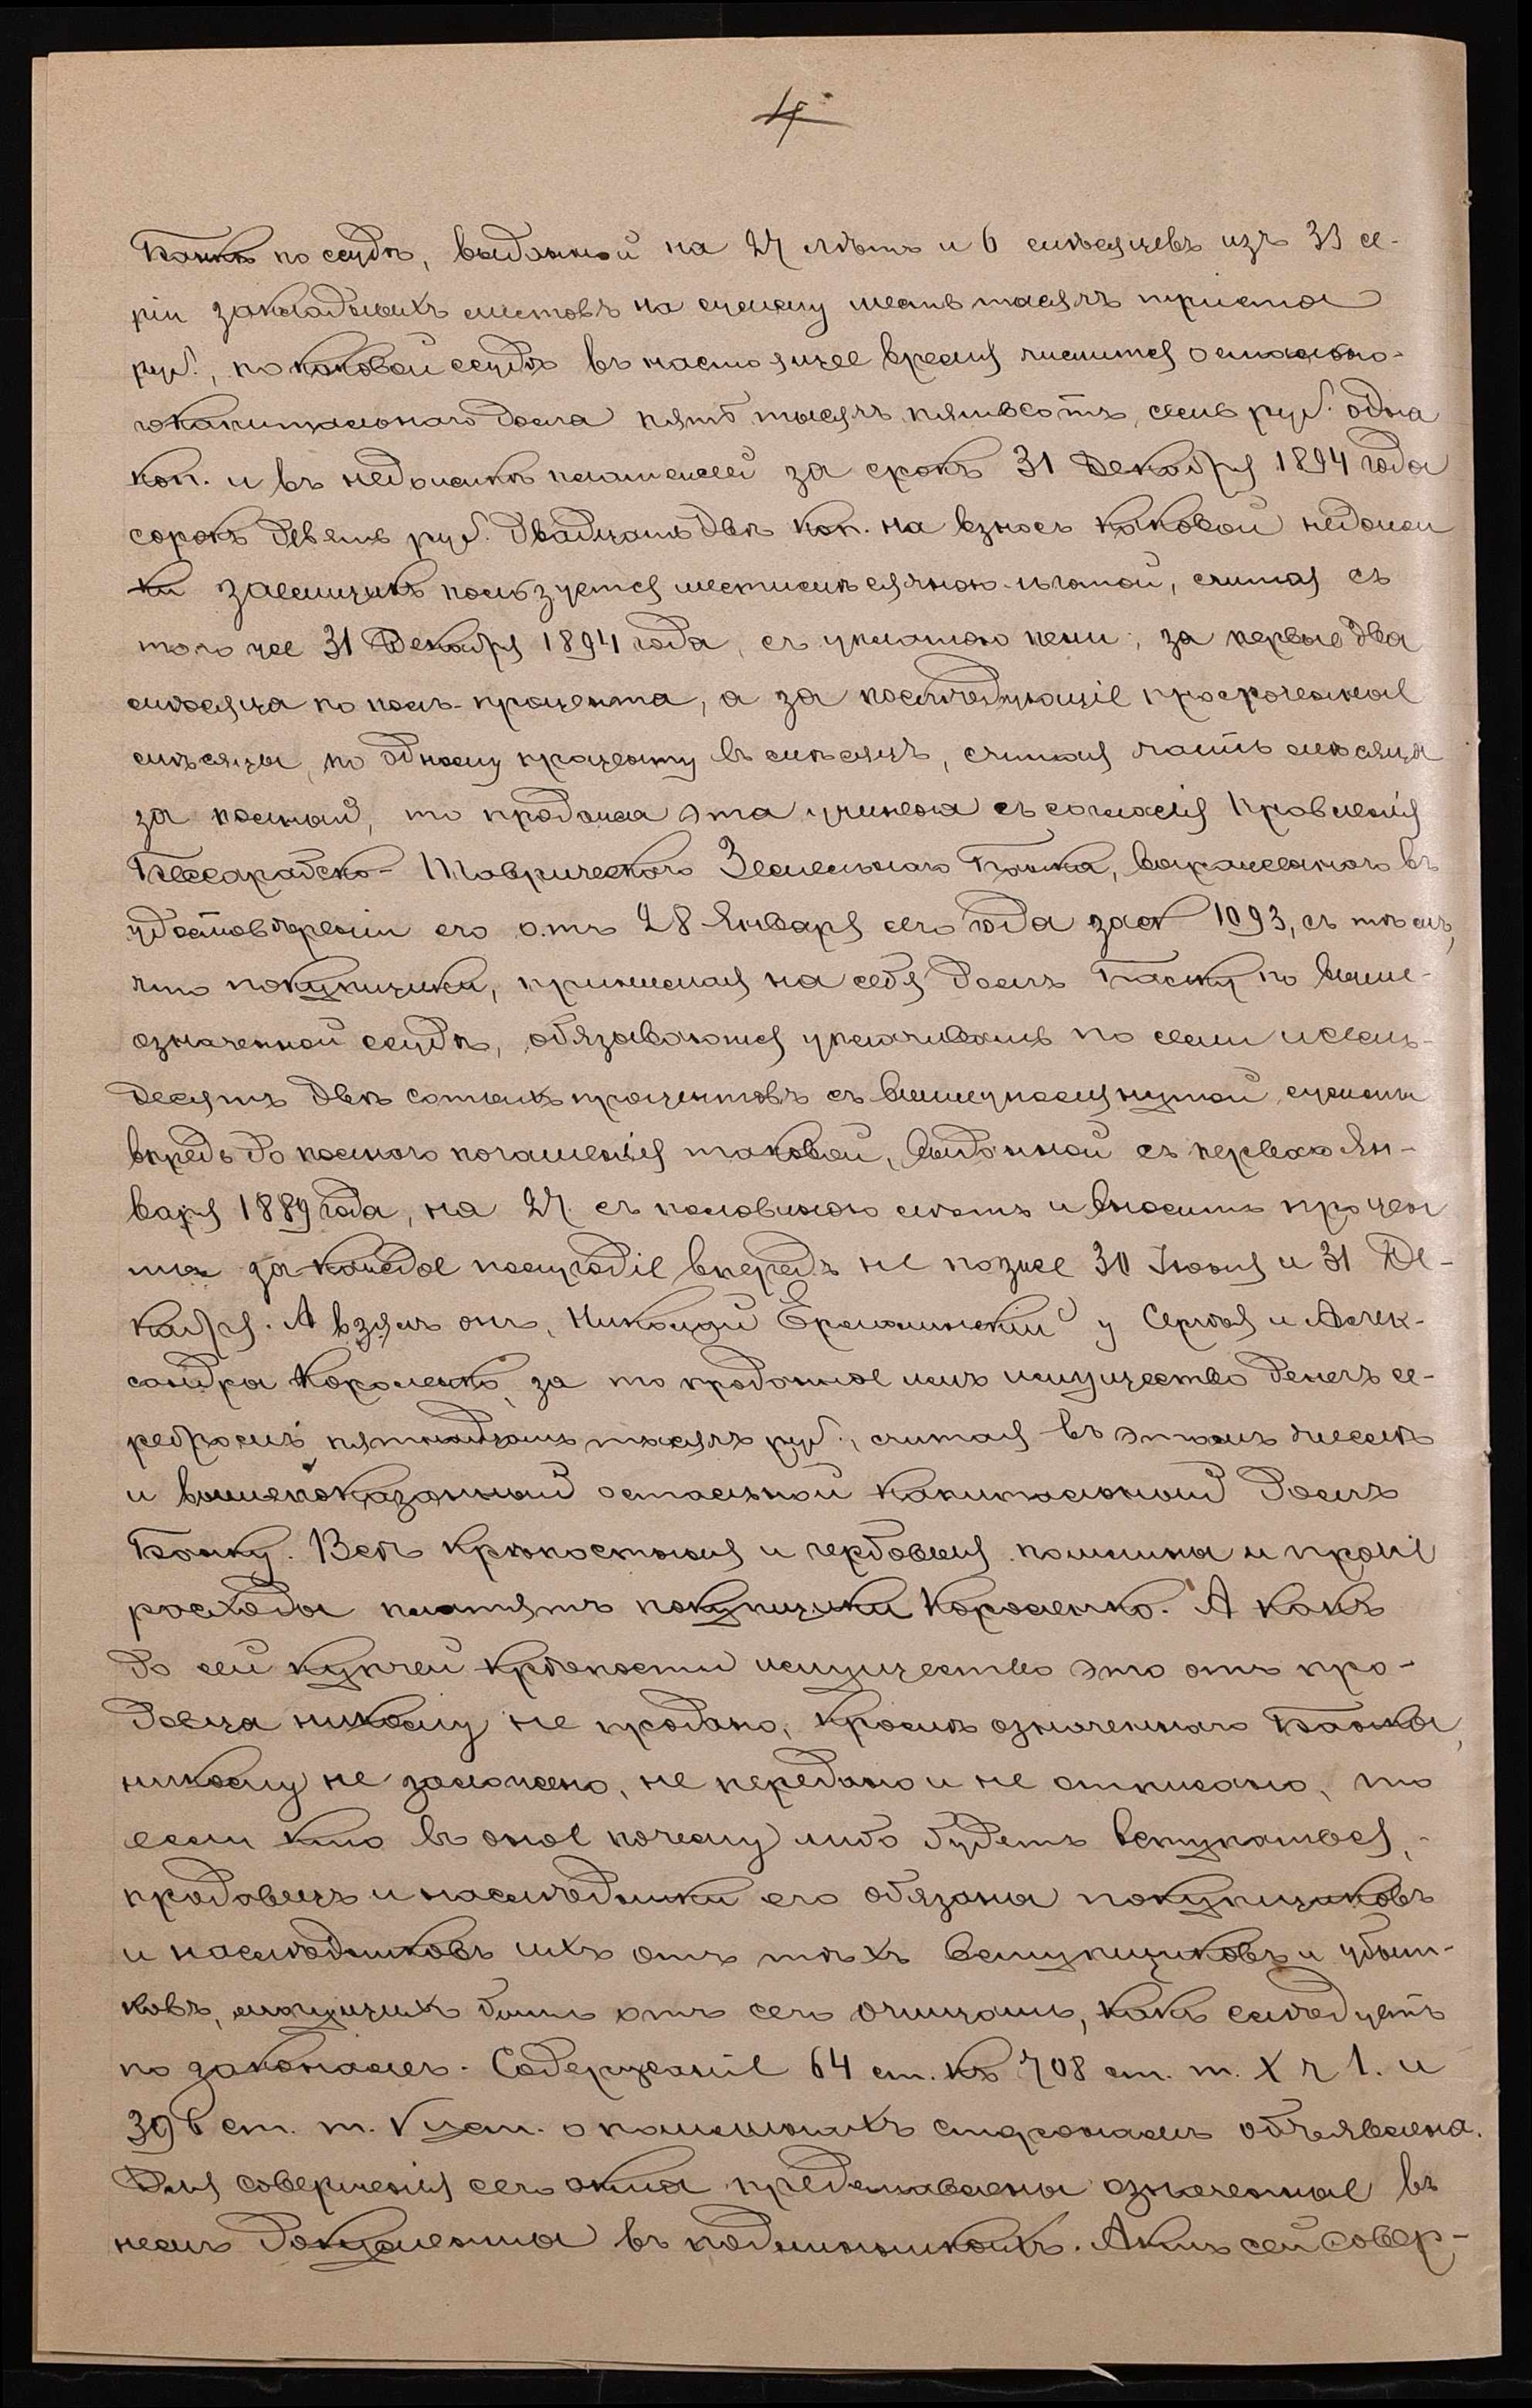 4
Банкѣ по ссудѣ, выданной на 27 лѣтъ и 6 мѣсяцевъ изъ 33 се-
ріи закладныхъ листовъ на сумму шесть тысячъ триста
руб., по каковой ссудѣ въ настоящее время числится остальна-
го капитальнаго долга пять тысячъ пятьсотъ семь руб. одна
коп. и въ недоимкѣ платежей за срокъ 31 Декабря 1894 года
сорокъ девять руб. двадцать двѣ коп. на взносъ каковой недоим
ки заемщикъ пользуется шестимѣсячною льготой, считая съ
того же 31 Декабря 1894 года, съ уплатою пени: за первые два
мѣсяца по полъ-процента, а за послѣдующіе просроченные
мѣсяцы, по одному проценту въ мѣсяцъ, считая часть мѣсяца
за полный, то продажа эта учинена съ согласія Правленія
Бессарабско-Таврическаго Земельнаго Банка, выраженнаго въ
удостовѣреніи его отъ 28 Января сего года за № 1093, съ тѣмъ,
что покупщики, принимая на себя долгъ Банку по выше-
означенной ссудѣ, обязываются уплачивать по семи и семь-
десятъ двѣ сотыхъ процентовъ съ вышеупомянутой суммы
впредь до полнаго погашенія таковой, выданной съ перваго Ян-
варя 1889 года, на 27 съ половиною лѣтъ и вносить процен
ты за каждое полугодіе впередъ не позже 30 Іюня и 31 Де-
кабря. А взялъ онъ, Николай Ермолинскій у Сергѣя и Алек-
сандра Короленко, за то проданное имъ имущество денегъ се-
ребромъ пятнадцать тысячъ руб., считая въ этомъ числѣ
и вышепоказанный остальной капитальный долгъ
Банку. Всѣ крѣпостныя и гербовыя пошлины и прочіе
расходы платятъ покупщики Короленко. А какъ
до сей купчей крѣпости имущество это отъ про-
давца никому не продано, кромѣ означеннаго Банка,
никому не заложено, не передано и не отписано, то
если кто въ оное почему либо будетъ вступаться,
продавецъ и наслѣдники его обязаны покупщиковъ
и наслѣдниковъ ихъ отъ тѣхъ вступщиковъ и убыт-
ковъ, могущихъ быть отъ сего очищать, какъ слѣдуетъ
по законамъ. Содержаніе 64 ст. къ 708 ст. т. X ч 1. и
396 ст. т. V уст. о пошлинахъ сторонамъ объявлена.
Для совершенія сего акта представлены означенные въ
немъ документы въ подлинникахъ. Актъ сей совер-